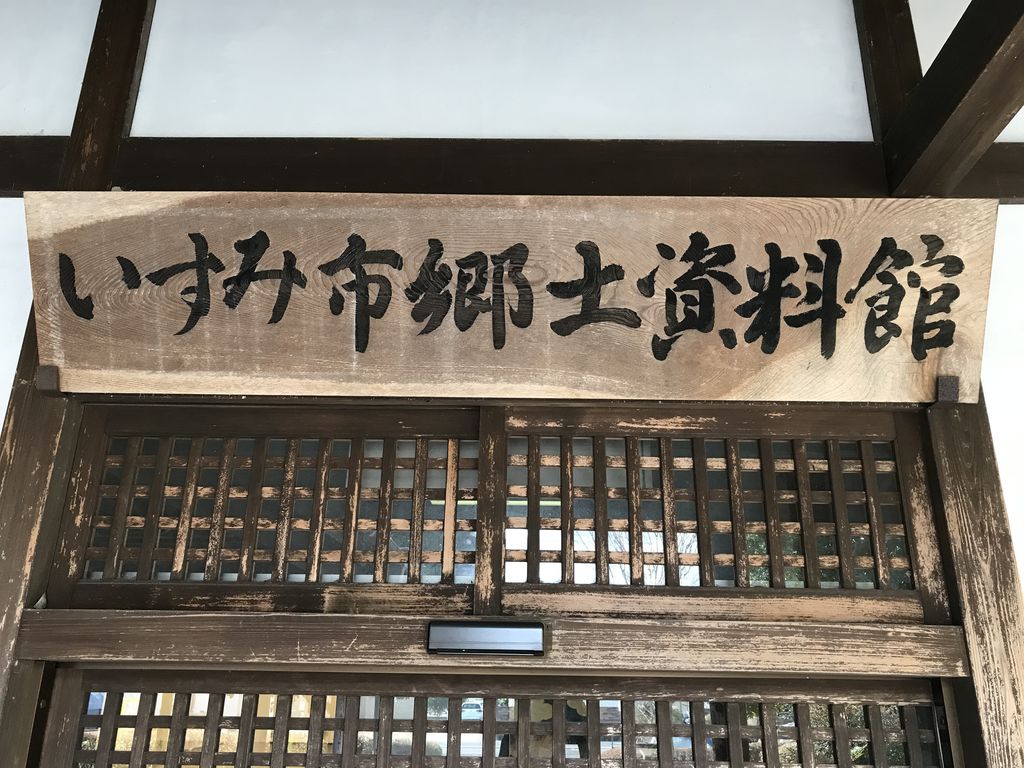 いすみ市郷土資料館